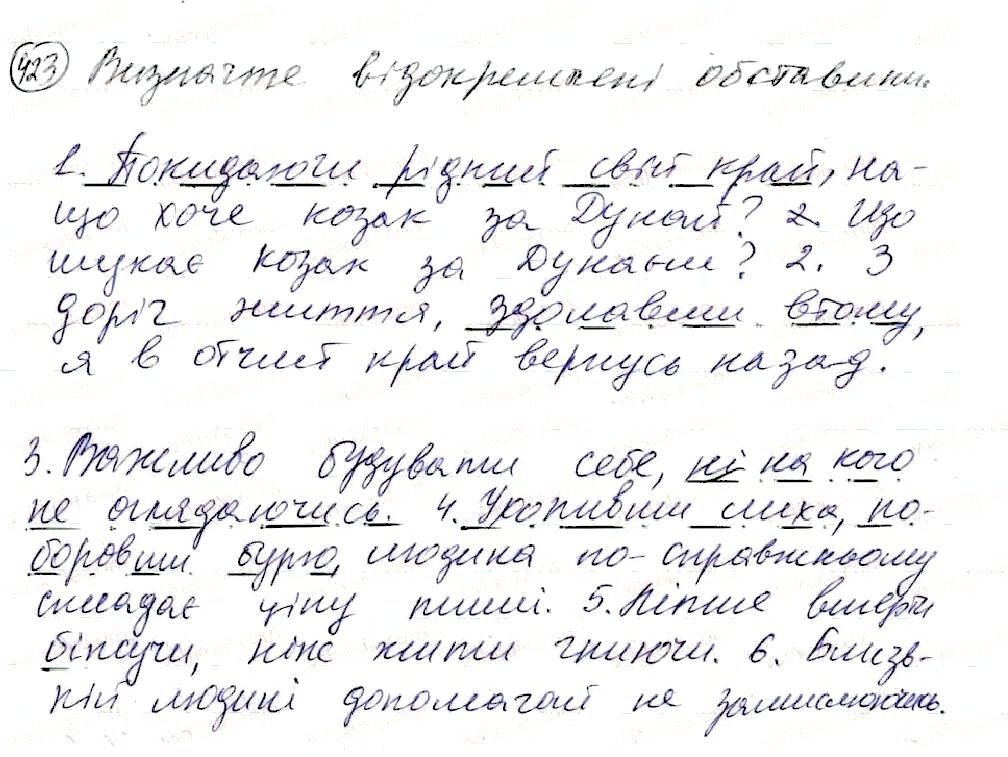 423 Визначте відокремлені обставини.
1. Покидаючи рідний свій край, на-
що хоче козак за Дунай? 2. Що
шукає козак за Дунаєм? 2. З
доріг життя, здолавши втому,
я в отчий край вернусь назад.
3. Важливо будувати себе, ні на кого
не оглядаючись. 4. Уропивши лиха, по-
боровши бурю, людина по-справжньому
складає ціну тиші. 5. Ліпше вмерти
біжучи, ніж жити гниючи. 6. Близь-
кій людині допомагай не замислюючись.